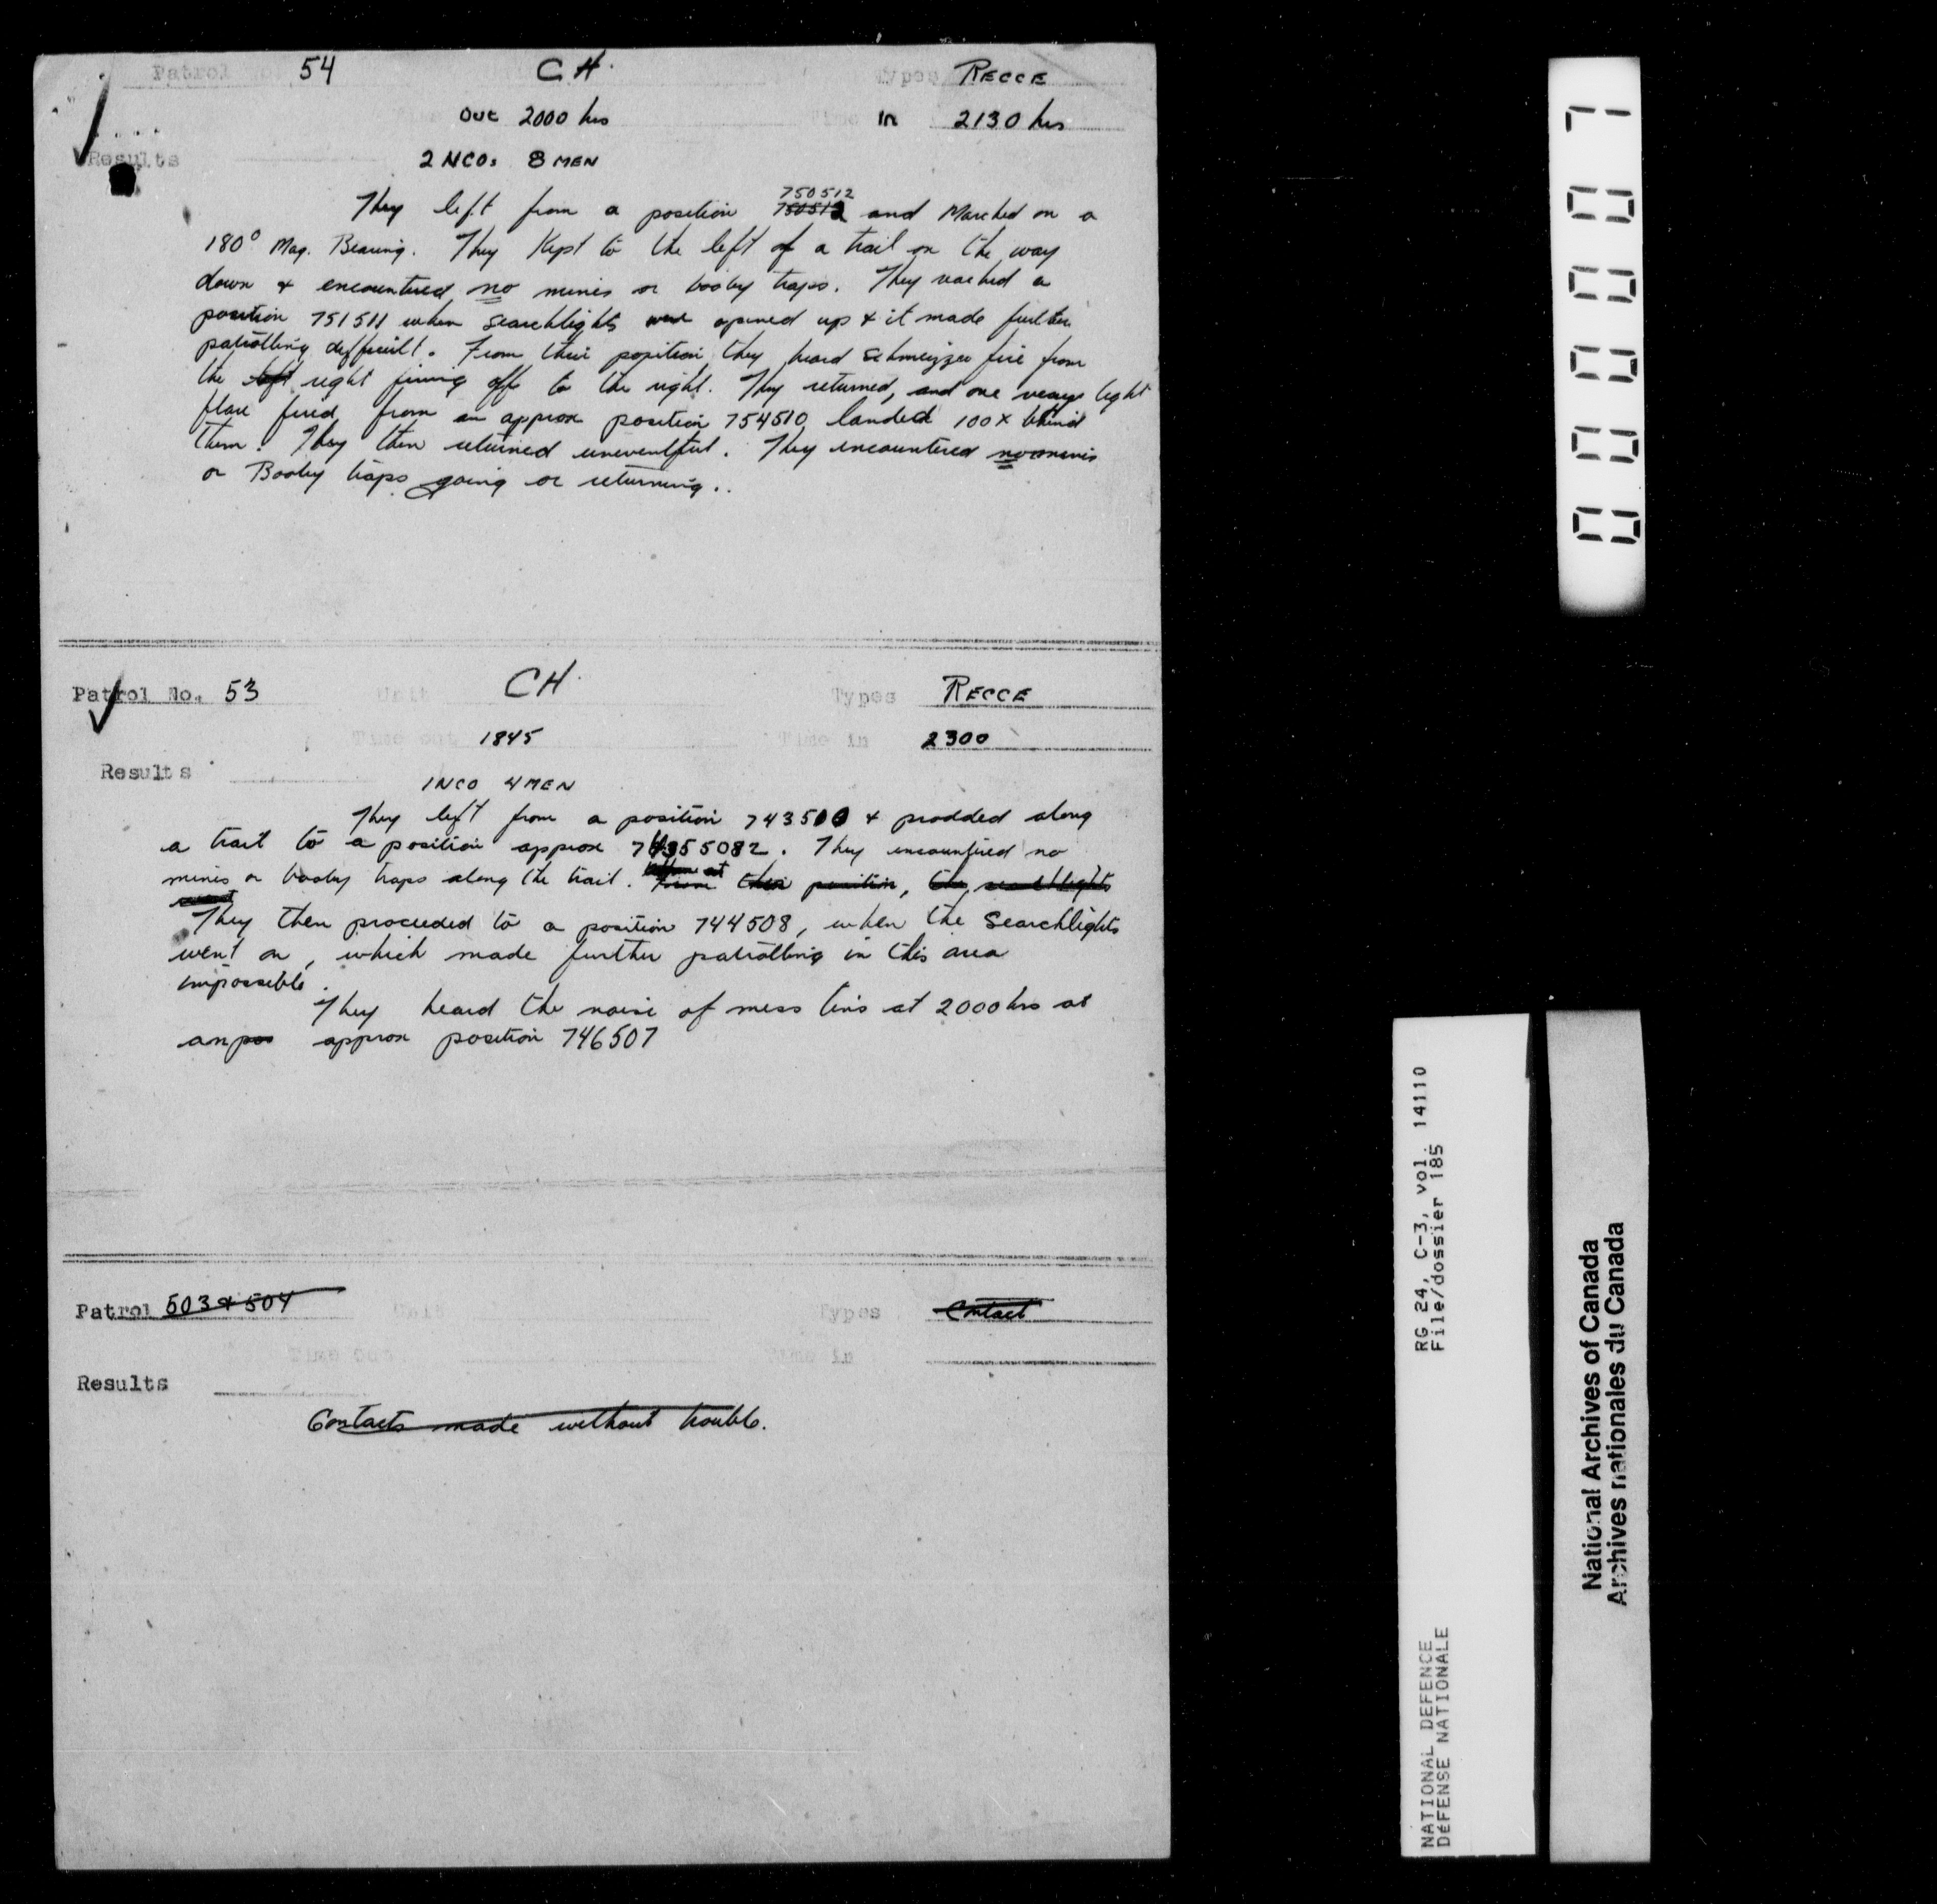 Patrol No. 54 C.H. Types RECCE
Out 2000 hrs Time In 2130 hrs
Results
2 NCOs 8 MEN
They left from a position 750512 750512 and Marched on a
180° Mag. Bearing. They kept to the left of a trail on the way
down & encountered no mines or booby traps. They reached a
position 751511 when Searchlights were opened up & it made further
patrolling difficult. From their position, they heard Schmeizzer fire from
the left right firing off to the right. They returned, and one verey light
flare fired from an approx position 754510 landed 100x behind
them. They then returned uneventful. They encountered no mines
or Booby traps going or returning..
Patrol No. 53 Unit CH. Types RECCE
Time out 1845 Time in 2300
Results
1 NCO 4 MEN
They left from a position 743510 & prodded along
a trail to a position approx 74355082. They encountered no
mines or booby traps along the trail. From their position, the searchlights
went
They then proceeded to a position 744508, when the Searchlights
went on, which made further patrolling in this area
impossible.
They heard the noise of mess tins at 2000 hrs at
an pos approx position 746507
Patrol 503 & 504 Unit Types Contact
Time Out Time in
Results
Contacts made without trouble.
0000 07
RG 24, C-3, vol. 14110
File/dossier 185
NATIONAL DEFENCE
DÉFENSE NATIONALE
National Archives of Canada
Archives nationales du Canada